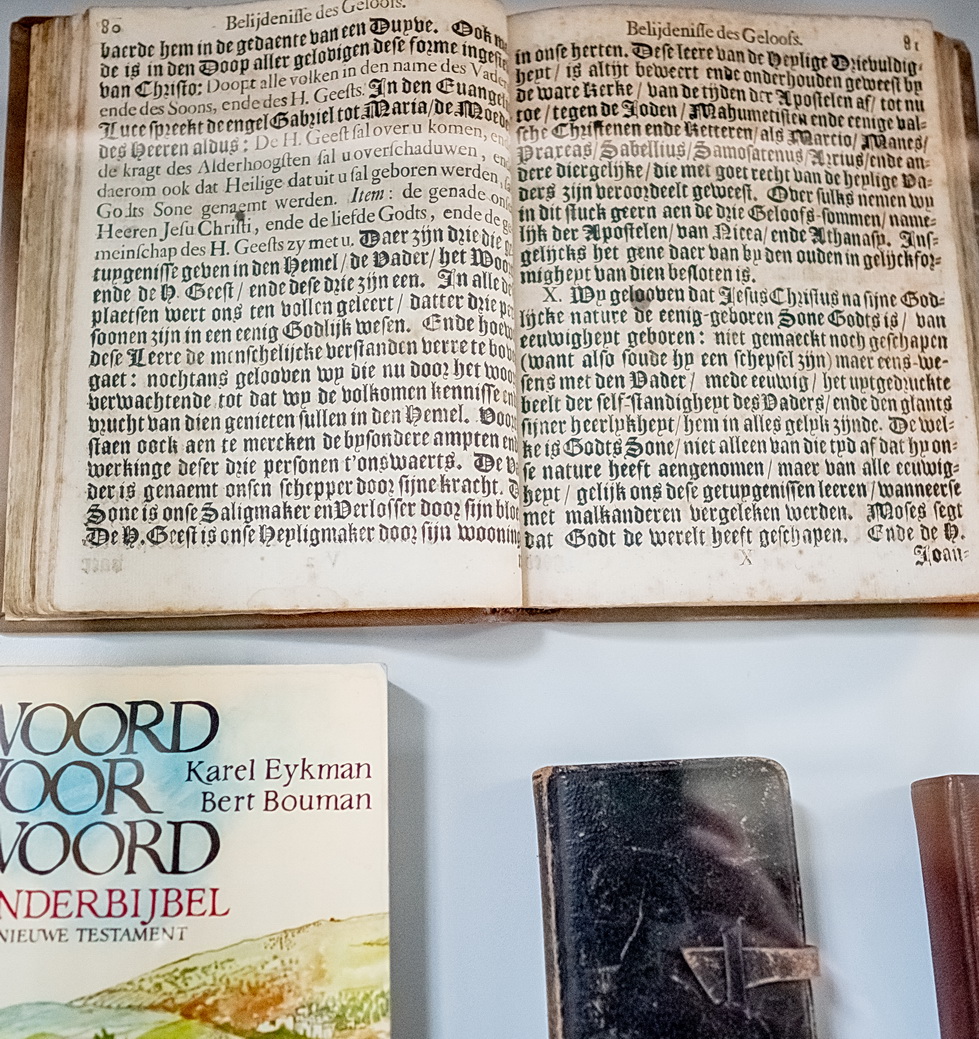 80
Belijdenisse des Geloofs.
baerde hem in de gedaente van een Duyve. Ook
de is in den Doop aller geloovigen dese forme
van Christo: Doopt alle volken in den name des
ende des Soons, ende des H. Geests. In den
Luce spreekt de engel Gabriel tot Maria/de
des Heeren aldus: De H. Geest sal over u komen,
de kragt des Alderhoogsten sal u overschaduwen,
daerom ook dat Heilige dat uit u sal geboren werden,
Godts Sone genaemt werden. Item: de genade
Heeren Jesu Christi, ende de liefde Godts, ende de
meinschap des H. Geests zy met u. Daer zijn drie die
tuygenisse geven in den Hemel/de Vader/het
ende de H. Geest/ende dese drie zijn een. In alle
plaetsen wert ons ten vollen geleert/datter drie
soonen zijn in een eenig Godlijk wesen. Ende
dese Leere de menschelijcke verstanden verre te
gaet: nochtans gelooven wy die nu door het
verwachtende tot dat wy de volkomen kennisse
vrucht van dien genieten sullen in den Hemel.
staen oock aen te mercken de bysondere ampten
werkinge deser drie personen t'onswaerts. De
der is genaemt onsen schepper door sijne kracht.
Sone is onse Saligmaker en Verlosser door sijn
De H. Geest is onse Heyligmaker door sijn
Belijdenisse des Geloofs.
81
in onse herten. Dese leere van de Heylige Drievuldig-
heyt/is altijt beweert ende onderhouden geweest by
de ware Kerke/van de tijden der Apostelen af/tot nu
toe/tegen de Joden/Mahumetisten ende eenige val-
sche Christenen ende Ketteren/als Marcio/Manes/
Praxeas/Sabellius/Samosatenus/Arrius/ende an-
dere diergelijke/die met goet recht van de heylige Va-
ders zijn veroordeelt geweest. Over sulks nemen wy
in dit stuck geern aen de drie Geloofs-sommen/name-
lijk der Apostelen/van Nicea/ende Athanasy. Ins-
gelijcks het gene daer van by den ouden in gelijckfor-
migheyt van dien besloten is.
X. Wy gelooven dat Jesus Christus na sijne God-
lijcke nature de eenig-geboren Sone Godts is/van
eeuwigheyt geboren: niet gemaeckt noch geschapen
(want also soude hy een schepsel zijn) maer eens-we-
sens met den Vader/mede eeuwig/het uytgedruckte
beelt der self-standigheyt des Vaders/ende den glants
sijner heerlykheyt/hem in alles gelyk zijnde. De wel-
ke is Godts Sone/niet alleen van die tyd af dat hy on-
se nature heeft aengenomen/maer van alle eeuwig-
heyt/gelijk ons dese getuygenissen leeren/wanneerse
met malkanderen vergeleken werden. Moses segt
dat Godt de werelt heeft geschapen. Ende de H.
Joan-
WOORD
VOOR
WOORD
Karel Eykman
Bert Bouman
NDERBIJBEL
NIEUWE TESTAMENT